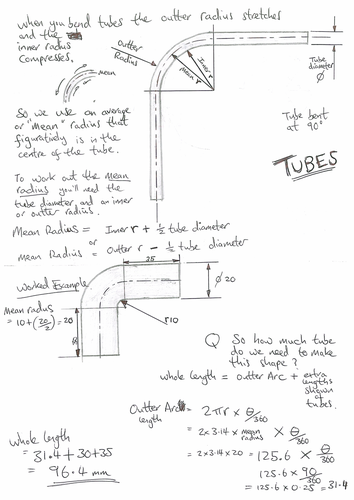 when you bend tubes the outter radius stretches
and the
inner radius
compresses.
mean
Outter
Radius
Inner r
Mean r
Tube
diameter
Ø
So we use an average
or "mean" radius that
figuratively is in the
centre of the tube.
Tube bent
at 90°
TUBES
To work out the mean
radius you'll need the
tube diameter, and an inner
or outter radius.
Mean Radius = Inner r + ½ tube diameter
or
mean Radius = Outter r - ½ tube diameter
Worked Example
35
Ø20
Mean radus
= 10 + (20/2) = 20
r10
Q So how much tube
do we need to make
this shape?
whole length = outter Arc + extra
lengths
shown of
tubes.
Outter Arc
length = 2πr × θ/360
= 2 × 3.14 × mean radius × θ/360
= 2 × 3.14 × 20 = 125.6 × θ/360
125.6 × 90/360
= 125.6 × 0.25 = 31.4
Whole length
= 31.4 + 30 + 35
= 96.4 mm